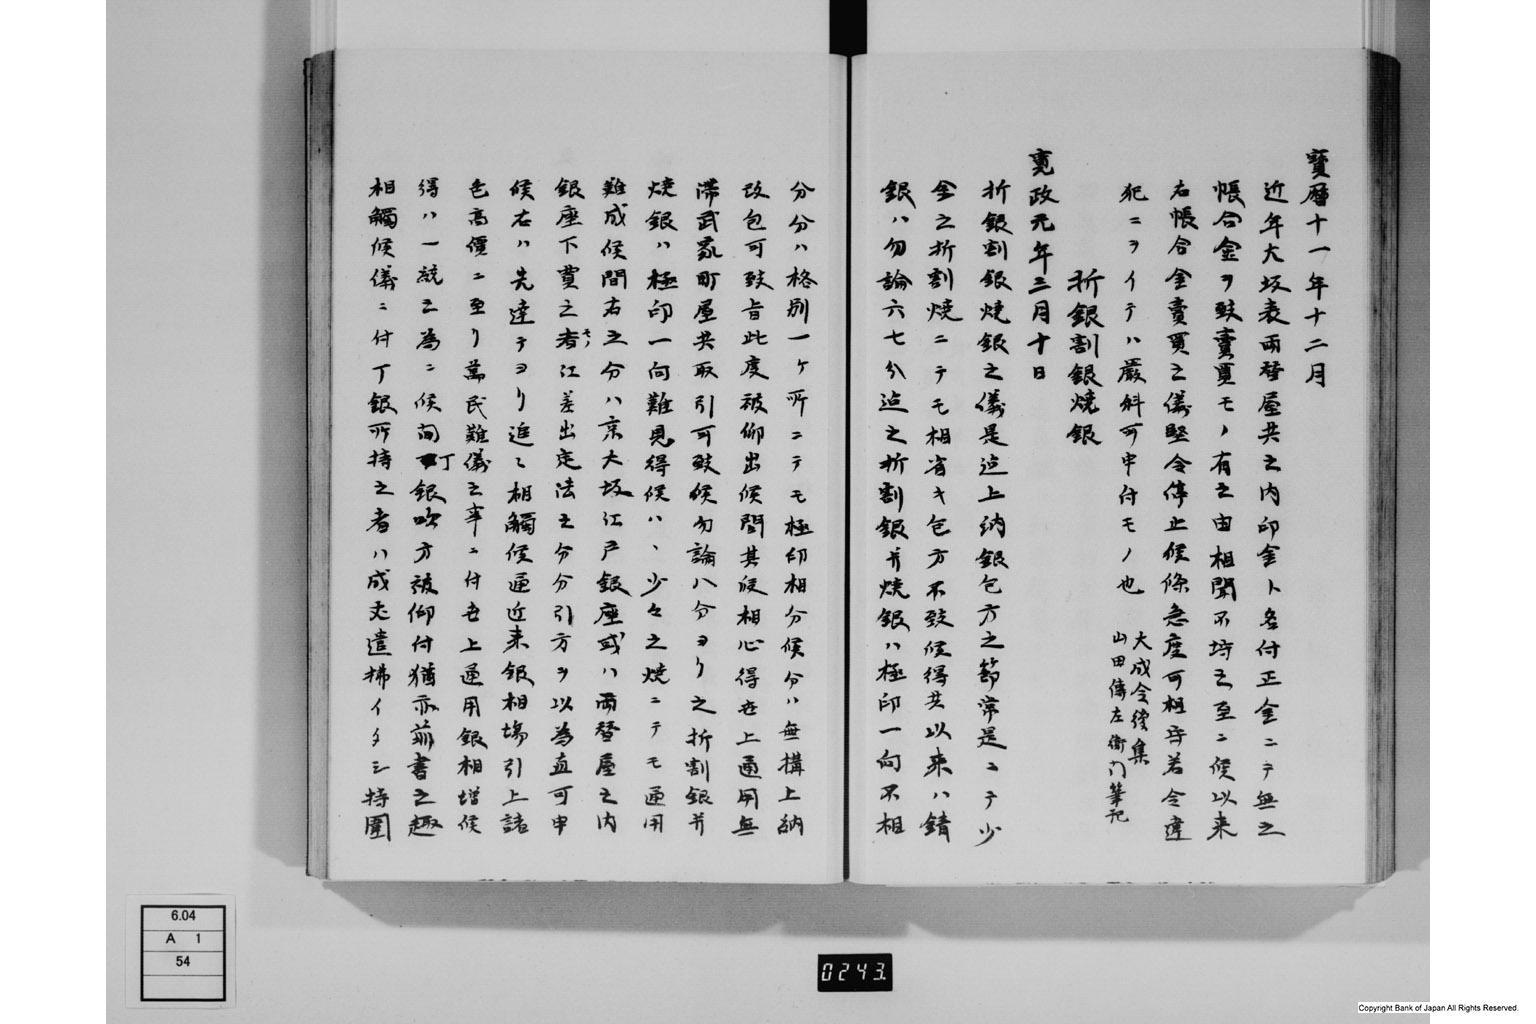 寳暦十一年十二月
近年大坂表両替屋共之内印金ト名付正金ニテ無之
帳合金ヲ致賣買モノ有之由相聞不埒之至ニ候以来
右帳合金賣買之儀堅令停止候條急度可相守若令違
犯ニヲイテハ嚴科可申付モノ也
大成令後集
山田傳左衛門筆記
折銀割銀焼銀
寛政元年三月十日
折銀割銀焼銀之儀是迠上納銀包方之節常是ニテ少
金之折割焼ニテモ相省キ包方不致候得共以来ハ錆
銀ハ勿論六七分迠之折割銀并焼銀ハ極印一向不相
分分ハ格別一ケ所ニテモ極印相分候分ハ無構上納
改包可致旨此度被仰出候間其段相心得世上通用無
滞武家町屋共取引可致候勿論八分ヨリ之折割銀并
焼銀ハ極印一向難見得候ハヽ少々之焼ニテモ通用
難成候間右之分ハ京大坂江戸銀座或ハ両替屋之内
銀座下買之者モノ江差出定法之分分引方ヲ以為直可申
候右ハ先達テヨリ追々相觸候通近来銀相場引上諸
色高價ニ至リ萬民難儀之事ニ付世上通用銀相増候
得ハ一統之為ニ候間丁銀吹方被仰付猶亦前書之趣
相觸候儀ニ付丁銀所持之者ハ成丈遣拂イタシ持圍
6.04
A 1
54
0243.
Copyright Bank of Japan All Rights Reserved.